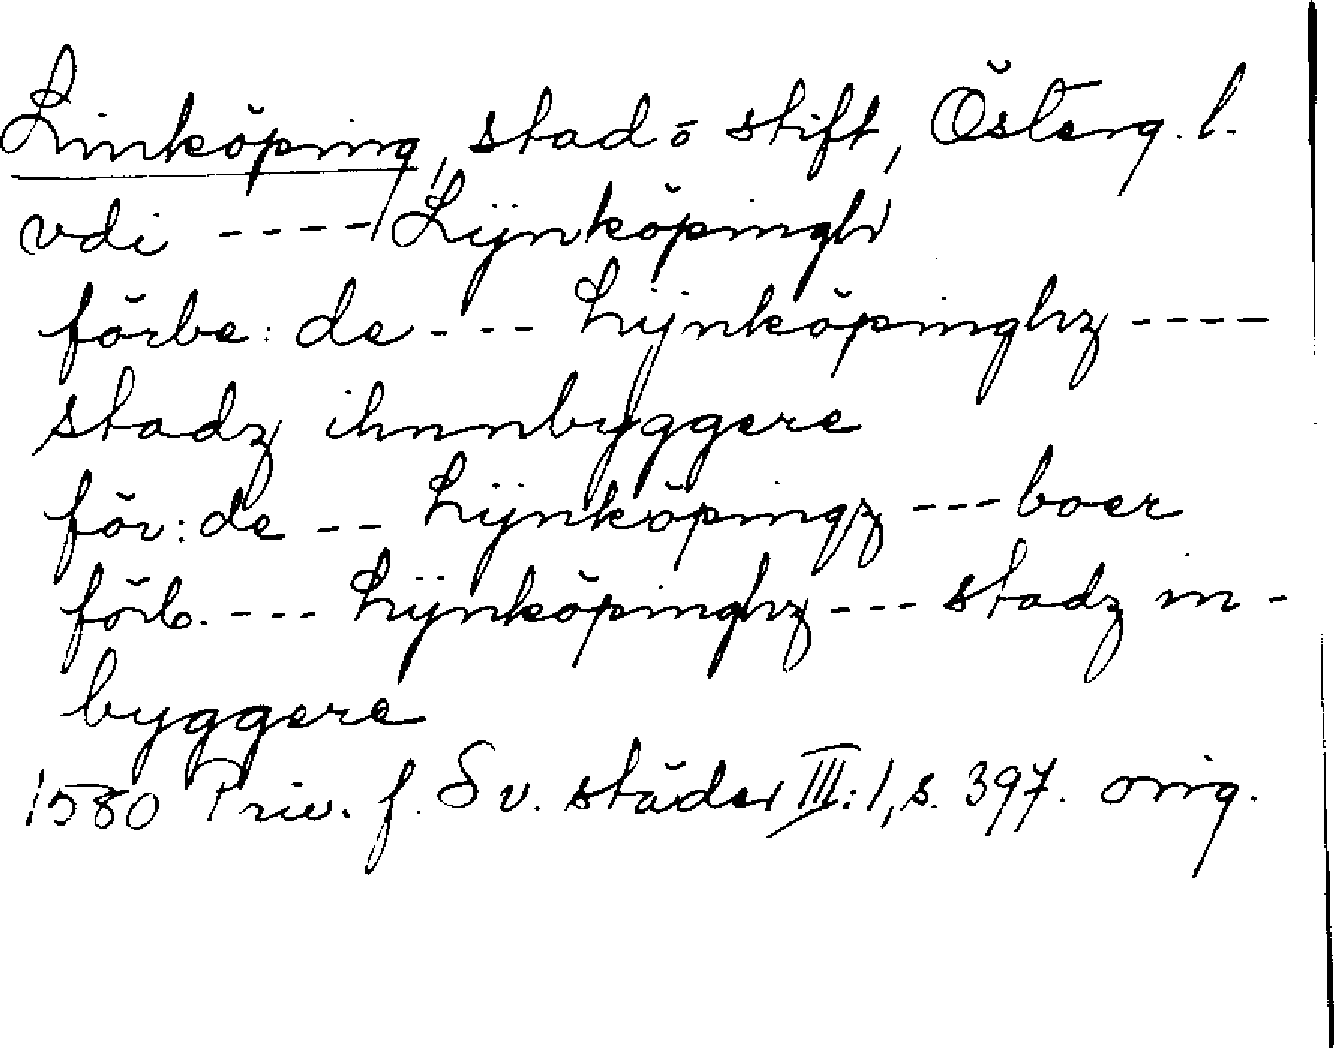 Linköping, stad o stift, Österg. l.
vdi ---- Lijnköpingh
förbe: de --- Lijnköpinghz ----
stadz ihnnbyggere
för: de -- Lijnköpingz --- boer
förb. --- Lijnköpinghz --- stadz in-
byggere
1580 Priv. f. Sv. städer III:1, s. 397. orig.